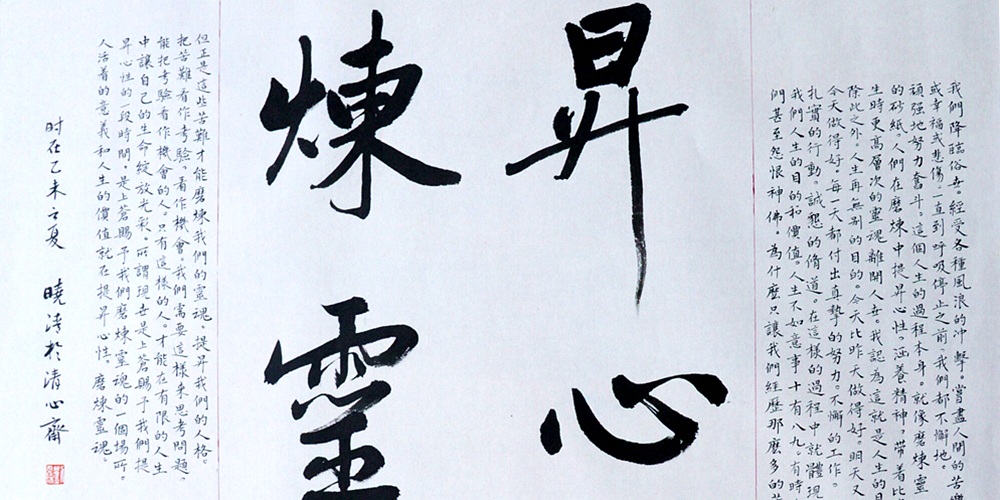 我們降臨俗世。經受各種風浪的沖擊。嘗盡人間的苦樂
或幸福或悲傷。一直到呼吸停止之前。我們都不懈地。
頑強地努力奮斗。這個人生的過程本身。就像磨煉靈
的砂紙。人們在磨煉中提昇心性。涵養精神。帶着比
生時更高層次的靈魂離開人世。我認為這就是人生的
除此之外。人生再無別的目的。今天比昨天做得好。明天又
今天做得好。每一天都付出真摯的努力。不懈的工作。
扎實的行動。誠懇的脩道。在這樣的過程中就體現
我們人生的目的和價值。人生不如意事十有八九。有時
們甚至怨恨神佛。為什麼只讓我們經歷那麼多的苦
昇心
煉靈
但正是這些苦難才能磨煉我們的靈魂。提昇我們的人格。
把苦難看作考驗。看作機會。我們需要這樣來思考問題。
能把考驗看作機會的人。只有這樣的人。才能在有限的人生
中讓自己的生命綻放光彩。所謂現世是上蒼賜予我們提
昇心性的一段時間。是上蒼賜予我們磨煉靈魂的一個場所。
人活着的意義和人生的價值就在提昇心性。磨煉靈魂。
时在乙未之夏 曉於清心齋